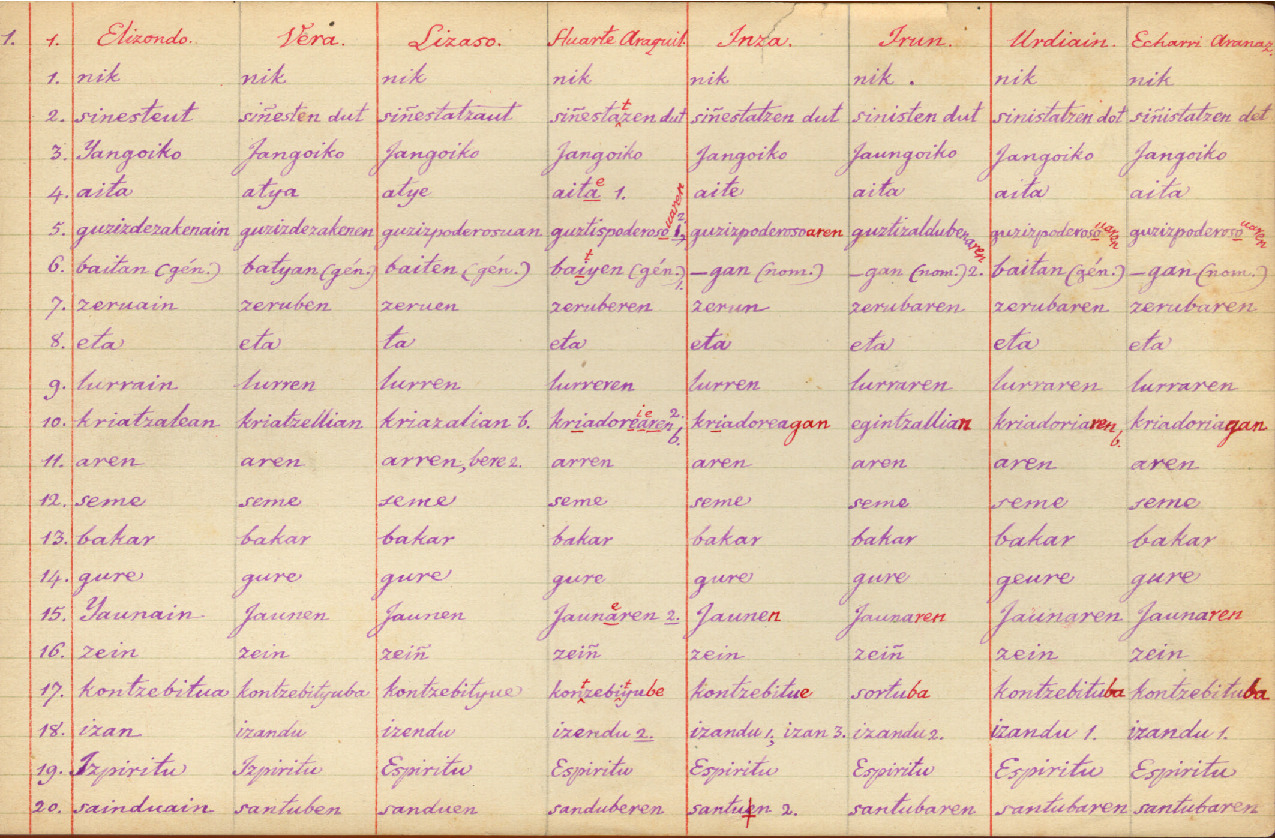 1. 1. Elizondo. Vera. Lizaso. Huarte Araquil. Inza. Irun. Urdiain. Echarri Aranaz.
1. nik nik nik nik nik nik . nik nik
2. sinesteut siñesten dut siñestatzaut siñestatzen dut siñestatzen dut sinisten dut sinistatzen dot siñistatzen det
3. Yangoiko Jangoiko Jangoiko Jangoiko Jangoiko Jaungoiko Jangoiko Jangoiko
4. aita atya atye aita e 1. aite aita aita aita
5. guzizdezakenain guzizdezakenen guzizpoderosuan guztispoderoso uaren 2. 1. guzizpoderosoaren guztizaldubenaren guzizpoderoso uaren guzizpoderoso uaren
6. baitan (gén.) batyan (gén.) baiten (gén.) baiyen t (gén.) 1. -gan (nom.) -gan (nom.) 2. baitan (gén.) -gan (nom.)
7. zeruain zeruben zeruen zeruberen zerun zerubaren zerubaren zerubaren
8. eta eta ta eta eta eta eta eta
9. lurrain lurren lurren lurreren lurren lurraren lurraren lurraren
10. kriatzalean kriatzellian kriazalian 6. kriadorearen ie 2. 6. kriadoreagan egintzallian kriadoriaren 6. kriadoriagan
11. aren aren arren, bere 2. arren aren aren aren aren
12. seme seme seme seme seme seme seme seme
13. bakar bakar bakar bakar bakar bakar bakar bakar
14. gure gure gure gure gure gure geure gure
15. Yaunain Jaunen Jaunen Jaunaren e 2. Jaunen Jaunaren Jaunaren Jaunaren
16. zein zein zeiñ zeiñ zein zeiñ zein zein
17. kontzebitua kontzebityuba kontzebityue kontzebityube t kontzebitue sortuba kontzebituba kontzebituba
18. izan izandu izendu izendu 2. izandu 1, izan 3. izandu 2. izandu 1. izandu 1.
19. Izpiritu Izpiritu Espiritu Espiritu Espiritu Espiritu Espiritu Espiritu
20. sainduain santuben sanduen sanduberen santuen 2. santubaren santubaren santubaren